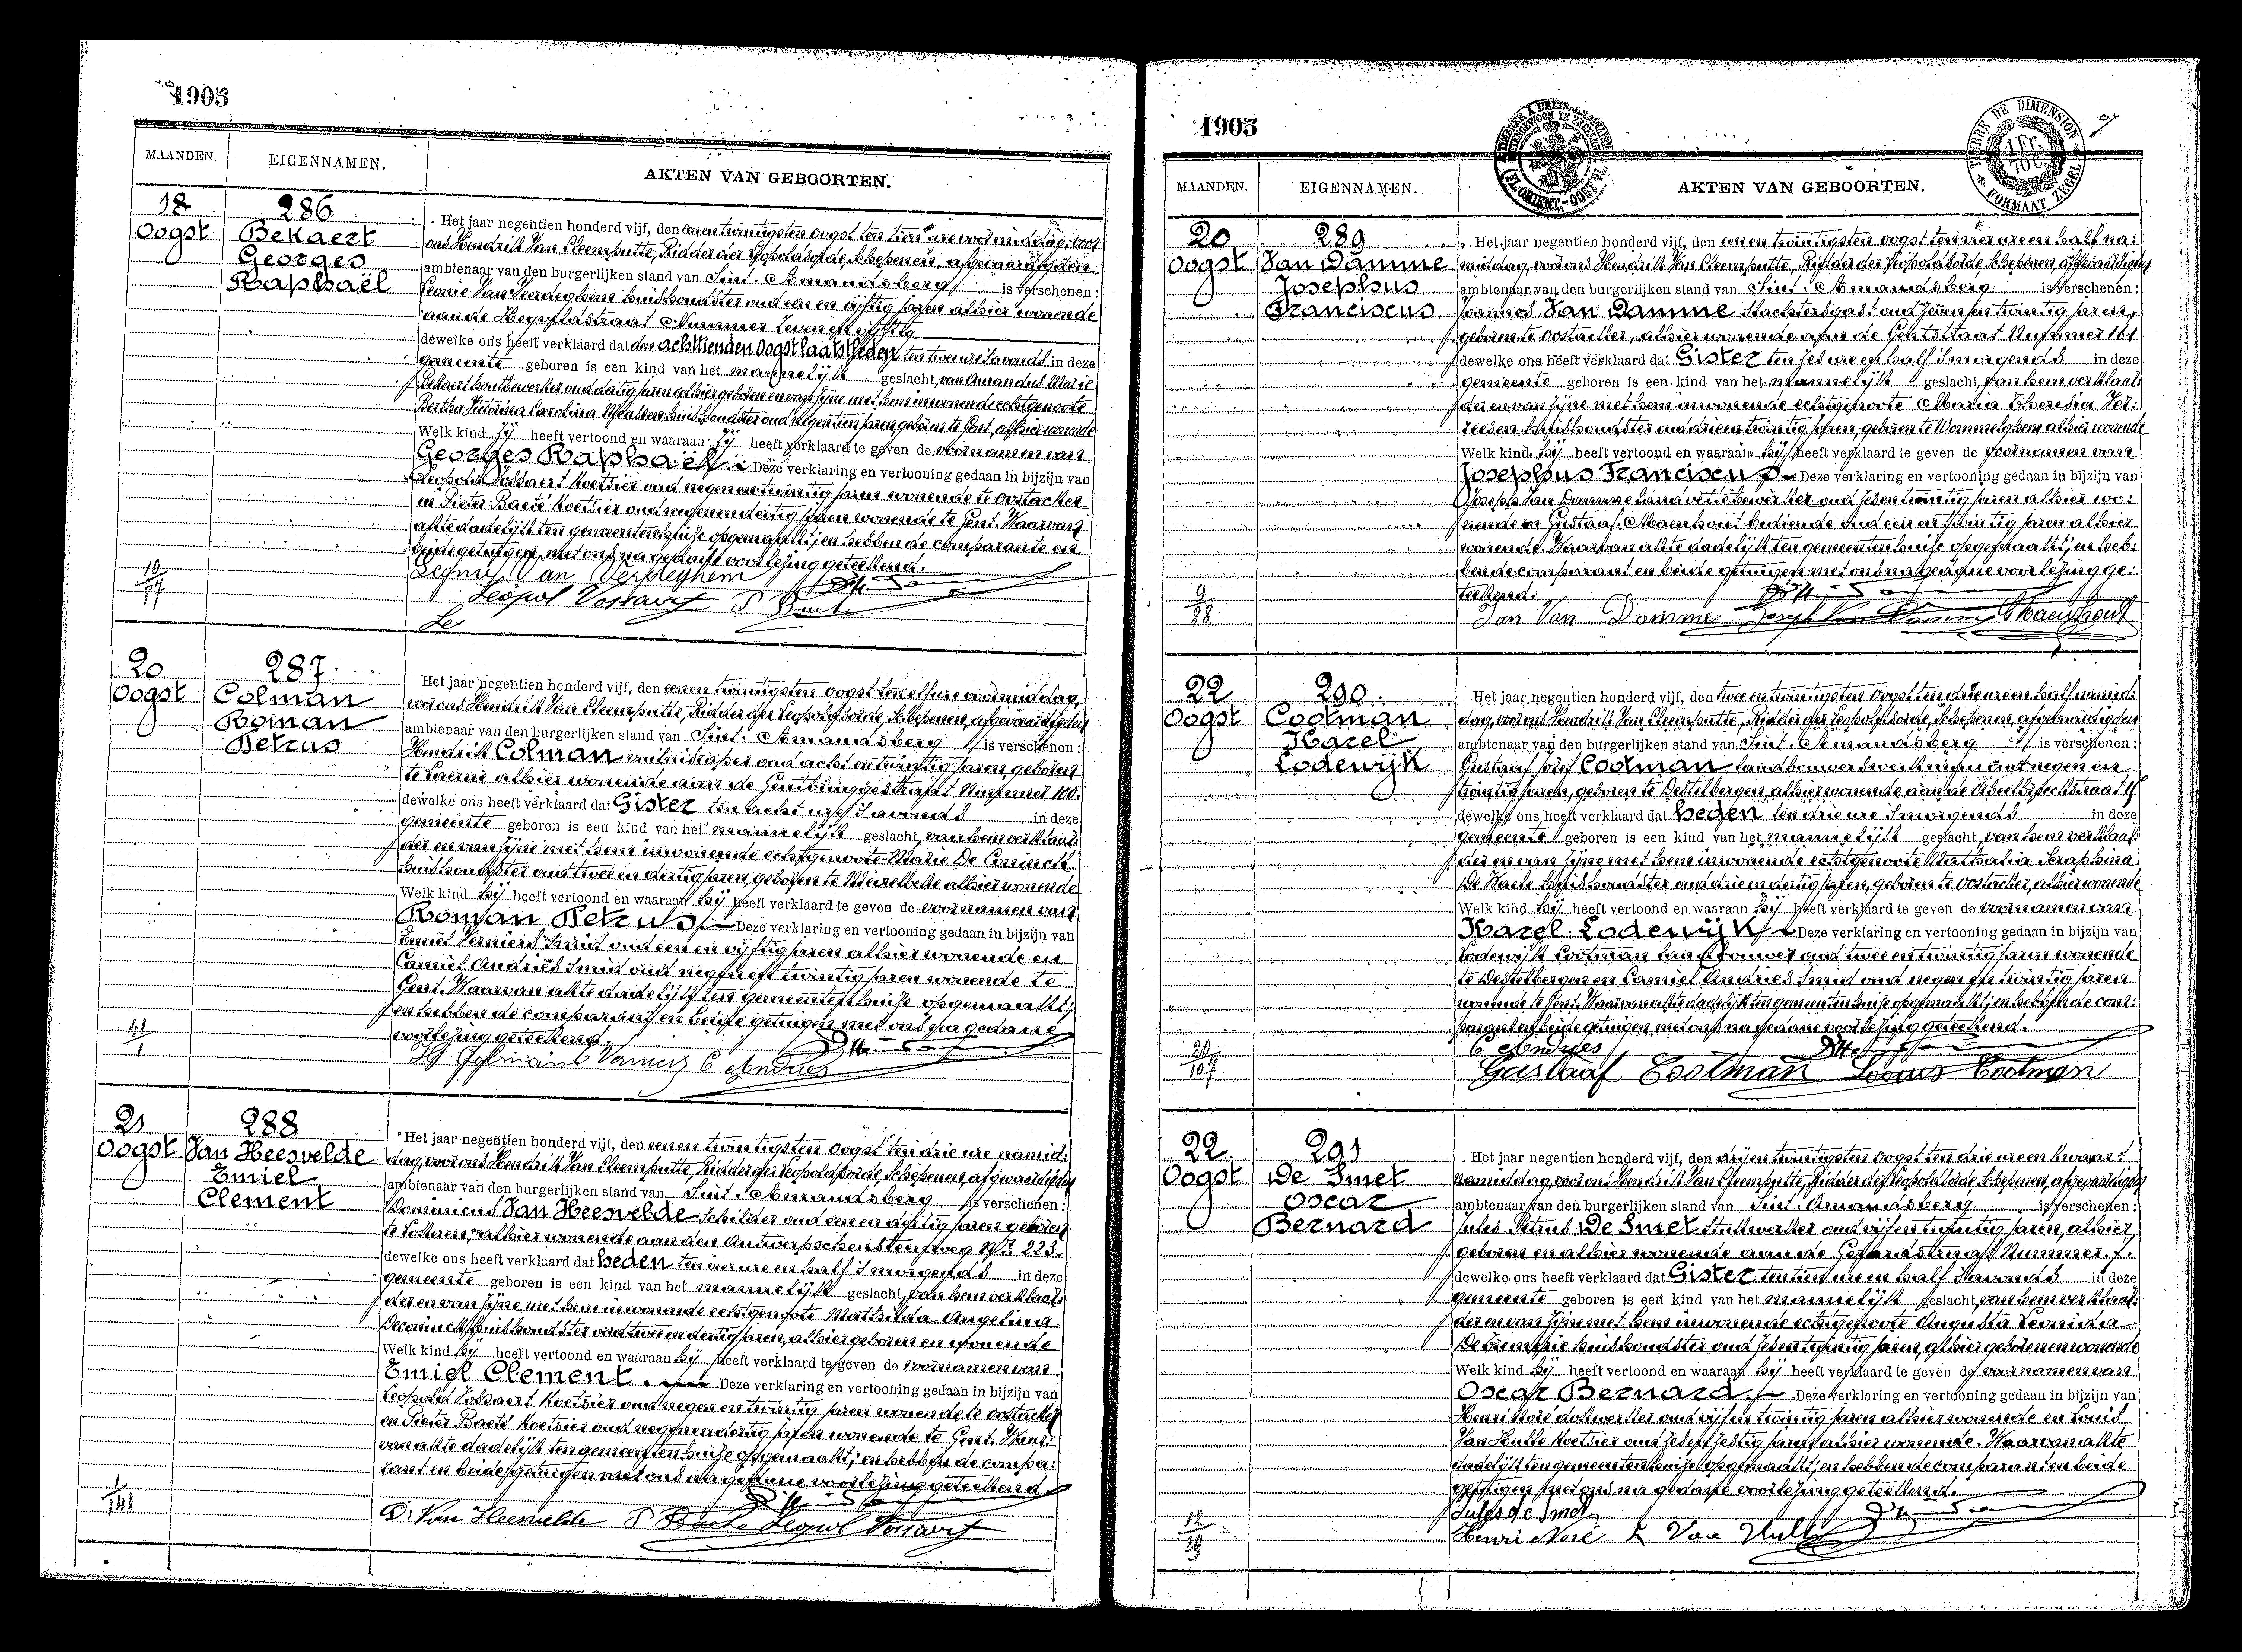 1905
MAANDEN. EIGENNAMEN. AKTEN VAN GEBOORTEN.
18 Oogst
286
Bekaert
Georges
Raphaël
Het jaar negentien honderd vijf, den eenen twintigsten Oogst ten tien ure voormiddag, voor
ons Hendrik Van Cleemputte, Ridder der Leopoldsorde, Schepenen, afgevaardigden
ambtenaar van den burgerlijken stand van Sint-Amandsberg is verschenen:
Leonie Van huishoudster oud een en vijftig jaren alhier wonende
aan de straat Nummer zeven en vijftig
dewelke ons heeft verklaard dat den achttienden Oogst laatstleden ten twee ure 's avonds in deze
gemeente geboren is een kind van het mannelijk geslacht, van Amandus Marie
Bekaert houtbewerker oud dertig jaren alhier geboren en van zijne met hem inwonende echtgenoote
Bertha Victorina Carolina huishoudster oud negentien jaren geboren te Gent, alhier wonende
Welk kind zij heeft vertoond en waaraan zij heeft verklaard te geven de voornamen van
Georges Raphaël. Deze verklaring en vertooning gedaan in bijzijn van
Leopold Vossaert Koetsier oud negen en twintig jaren wonende te Oostacker
en Pieter Baeté Koetsier oud negen en dertig jaren wonende te Gent. Waarvan
akte dadelijk ten gemeentenhuize opgemaakt; en hebben de comparante en
beide getuigen, met ons na gedaane voorlezing geteekend.
10
37
Leopol Vossaert P Baete
Le
20 Oogst
287
Colman
Roman
Petrus
Het jaar negentien honderd vijf, den eenen twintigsten Oogst ten elf ure voormiddag,
voor ons Hendrik Van Cleemputte, Ridder der Leopoldsorde, Schepenen, afgevaardigden
ambtenaar van den burgerlijken stand van Sint-Amandsberg is verschenen:
Hendrik Colman oud acht en twintig jaren, geboren
te Laerne alhier wonende aan de Gentbruggestraat Nummer 100.
dewelke ons heeft verklaard dat Gister ten acht ure 's avonds in deze
gemeente geboren is een kind van het mannelijk geslacht, van hem verklaar:
der en van zijne met hem inwonende echtgenoote Marie De Coninck
huishoudster oud twee en dertig jaren, geboren te Meirelbeke alhier wonende
Welk kind hij heeft vertoond en waaraan hij heeft verklaard te geven de voornamen van
Roman Petrus. Deze verklaring en vertooning gedaan in bijzijn van
Emiel Verniers Smid oud een en vijftig jaren alhier wonende en
Camiel Andries Smid oud negen en twintig jaren wonende te
Gent. Waarvan akte dadelijk ten gemeentenhuize opgemaakt;
en hebben de comparant en beide getuigen met ons na gedaane
voorlezing geteekend.
C Andries
21 Oogst
288
Van Heesvelde
Emiel
Clement
Het jaar negentien honderd vijf, den eenen twintigsten Oogst ten drie ure namid:
dag, voor ons Hendrik Van Cleemputte, Ridder der Leopoldsorde, Schepenen, afgevaardigden
ambtenaar van den burgerlijken stand van Sint-Amandsberg is verschenen:
Dominicus Van Heesvelde Schilder oud een en dertig jaren geboren
te Lokeren alhier wonende aan den Antwerpschensteenweg N° 223.
dewelke ons heeft verklaard dat heden ten vier ure en half 's morgends in deze
gemeente geboren is een kind van het mannelijk geslacht, van hem verklaar:
der en van zijne met hem inwonende echtgenoote Mathilda Angelina
Deconinck huishoudster oud twee en dertig jaren, alhier geboren en wonende
Welk kind hij heeft vertoond en waaraan hij heeft verklaard te geven de voornamen van
Emiel Clement. Deze verklaring en vertooning gedaan in bijzijn van
Leopold Vossaert Koetsier oud negen en twintig jaren wonende te Oostacker
en Pieter Baeté Koetsier oud negen en dertig jaren wonende te Gent. Waar:
van akte dadelijk ten gemeentenhuize opgemaakt; en hebben de compa:
rant en beide getuigen met ons na gedaane voorlezing geteekend.
1
141
D. Van Heesvelde P Baete Leopol Vossaert
1905
TIMBRE DE DIMENSION
1 Fr. 70 C.
FORMAAT ZEGEL
MAANDEN. EIGENNAMEN. AKTEN VAN GEBOORTEN.
20 Oogst
289
Van Damme
Josephus
Franciscus
Het jaar negentien honderd vijf, den eenen twintigsten Oogst ten vier ure en half na:
middag, voor ons Hendrik Van Cleemputte, Ridder der Leopoldsorde, Schepenen, afgevaardigden
ambtenaar van den burgerlijken stand van Sint-Amandsberg is verschenen:
Joannes Van Damme oud zeven en twintig jaren,
geboren te Oostacker, alhier wonende aan de Gentstraat Nummer 161
dewelke ons heeft verklaard dat Gister ten zes ure en half 's morgends in deze
gemeente geboren is een kind van het mannelijk geslacht, van hem verklaar:
der en van zijne met hem inwonende echtgenoote Maria Theresia Ver:
leesen huishoudster oud drie en twintig jaren, geboren te Wommelghem alhier wonende
Welk kind hij heeft vertoond en waaraan hij heeft verklaard te geven de voornamen van
Josephus Franciscus. Deze verklaring en vertooning gedaan in bijzijn van
Joseph Van Damme oud zes en twintig jaren alhier wo:
nende en Gustaaf Maenhout bediende oud een en twintig jaren alhier
wonende. Waarvan akte dadelijk ten gemeentenhuize opgemaakt; en heb:
ben de comparant en beide getuigen met ons na gedaane voorlezing ge:
teekend.
9
88
Jan Van Damme Joseph Van Damme Maenhout
22 Oogst
290
Cootman
Karel
Lodewijk
Het jaar negentien honderd vijf, den twee en twintigsten Oogst ten drie ure en half namid:
dag, voor ons Hendrik Van Cleemputte, Ridder der Leopoldsorde, Schepenen, afgevaardigden
ambtenaar van den burgerlijken stand van Sint-Amandsberg is verschenen:
Gustaaf Jozef Cootman oud negen en
twintig jaren, geboren te Destelbergen, alhier wonende aan de
dewelke ons heeft verklaard dat heden ten drie ure 's morgends in deze
gemeente geboren is een kind van het mannelijk geslacht, van hem verklaar:
der en van zijne met hem inwonende echtgenoote Nathalia Seraphina
De Waele huishoudster oud drie en dertig jaren, geboren te Oostacker, alhier wonende
Welk kind hij heeft vertoond en waaraan hij heeft verklaard te geven de voornamen van
Karel Lodewijk. Deze verklaring en vertooning gedaan in bijzijn van
Lodewijk Cootman landbouwer oud twee en twintig jaren wonende
te Destelbergen en Camiel Andries Smid oud negen en twintig jaren
wonende te Gent. Waarvan akte dadelijk ten gemeentenhuize opgemaakt; en hebben de com:
parant en beide getuigen met ons na gedaane voorlezing geteekend.
20
107
C Andries
Gustaaf Cootman Louis Cootman
22 Oogst
291
De Smet
Oscar
Bernard
Het jaar negentien honderd vijf, den dryen twintigsten Oogst ten drie ure en kwaar:
namiddag voor ons Hendrik Van Cleemputte, Ridder der Leopoldsorde, Schepenen, afgevaardigden
ambtenaar van den burgerlijken stand van Sint-Amandsberg is verschenen:
Jules Petrus De Smet oud vijf en twintig jaren, alhier
geboren en alhier wonende aan de straat Nummer 7.
dewelke ons heeft verklaard dat Gister ten tien ure en half 's avonds in deze
gemeente geboren is een kind van het mannelijk geslacht, van hem verklaar:
der en van zijne met hem inwonende echtgenoote Augusta Leonida
huishoudster oud zes en twintig jaren, alhier geboren en wonende
Welk kind hij heeft vertoond en waaraan hij heeft verklaard te geven de voornamen van
Oscar Bernard. Deze verklaring en vertooning gedaan in bijzijn van
Henri Noré oud vijf en twintig jaren alhier wonende en Louis
Van Hulle Koetsier oud zes en zestig jaren alhier wonende. Waarvan akte
dadelijk ten gemeentenhuize opgemaakt; en hebben de comparant en beide
getuigen met ons na gedaane voorlezing geteekend.
12
29
Jules de Smet
Henri Noré L Van Hulle